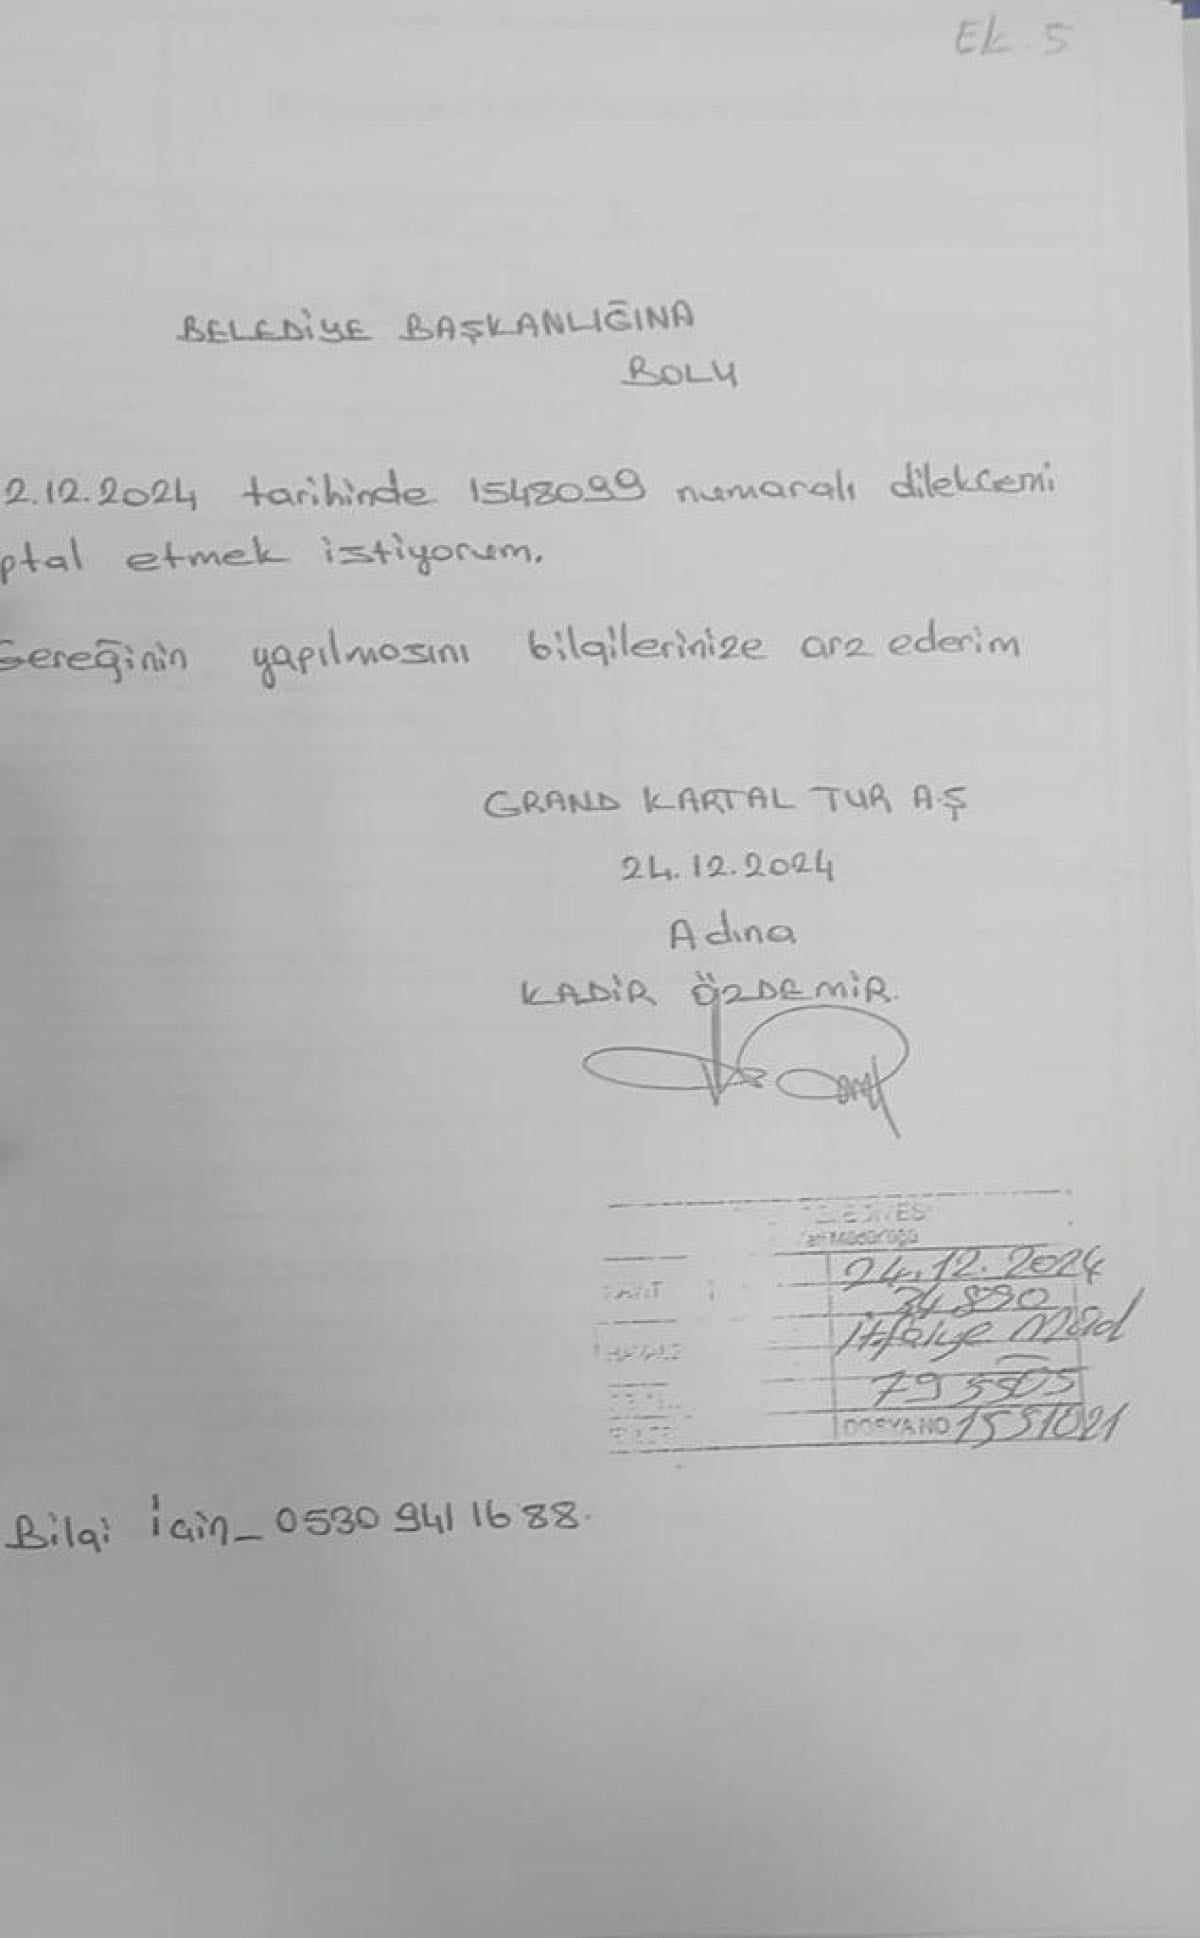 Ek. 5
BELEDİYE BAŞKANLIĞINA
BOLU
2.12.2024 tarihinde 1548099 numaralı dilekcemi
ptal etmek istiyorum.
Gereğinin yapılmasını bilgilerinize arz ederim
GRAND KARTAL TUR A.Ş
24.12.2024
Adına
KADİR ÖZDEMİR.
24.12.2024
34890
İtfaiye Müd
795505
DOSYA NO 1551021
Bilgi İçin_ 0530 941 16 88.